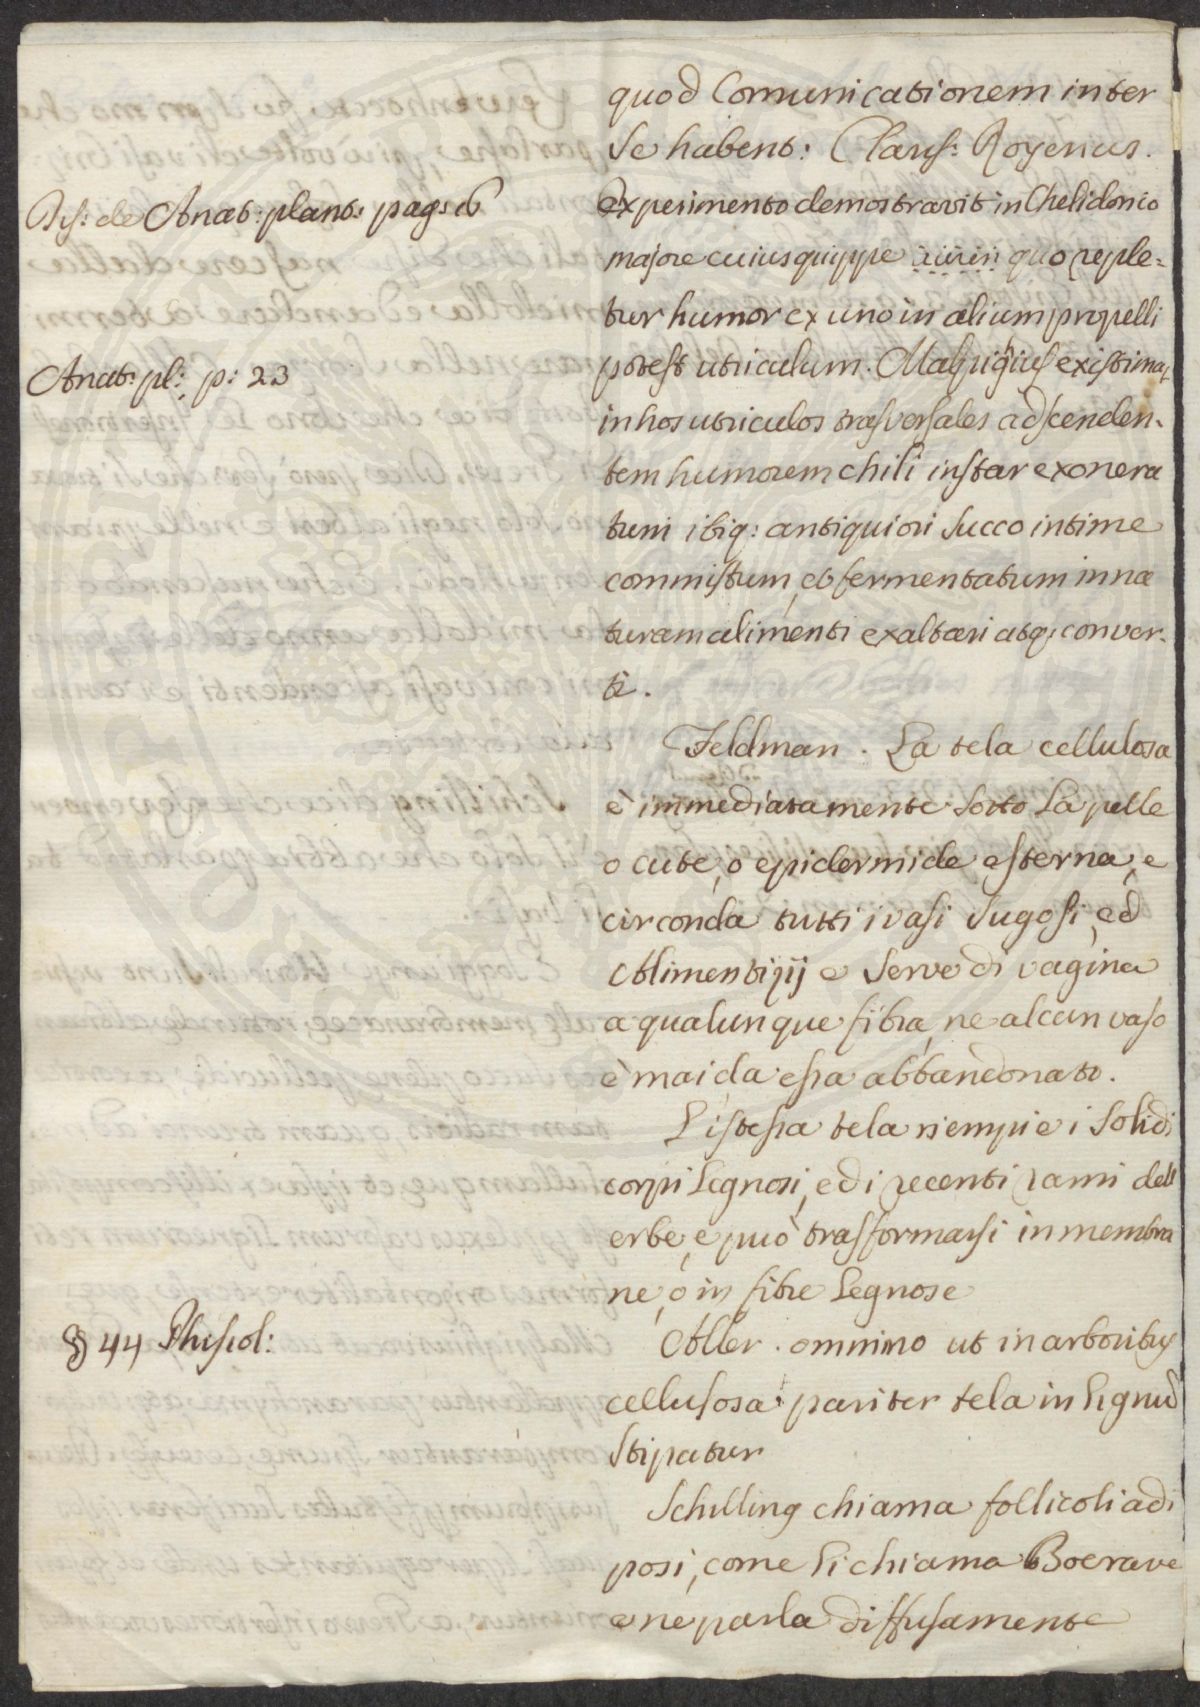 quod Comunicationem inter
se habent: Clariss: Royerius.
Dis: de Anat: plant: pag: 6
experimento demostravit in Chelidonio
majore cuius quippe quo reple-
tur humor ex uno in alium propelli
Anat: pl: p: 23
potest utriculum. Malpighius existimat
in hos utriculos trasversales adscenden-
tem humorem chili instar exonera
tum ibiq: antiquiori succo intime
commistum, et fermentatum in na
turam alimenti exaltari atq; conver-
ti.
Feldman. La tela cellulosa
è immediatamente sotto la pelle
o cute, o epidermide esterna, e
circonda tutti i vasi sugosi, ed
Alimentizij e serve di vagina
a qualunque fibra, ne alcun vaso
è mai da essa abbandonato.
L'istessa tela riempie i solidi
corpi legnosi, ed i recenti rami dell
erbe, e può trasformarsi in membra
ne, o in fibre legnose
§ 44 Phisiol:
Aller. omnino ut in arboribus
cellulosa pariter tela in lignū
stipatur
Schilling chiama follicoli adi
posi, come li chiama Boerave
e ne parla diffusamente